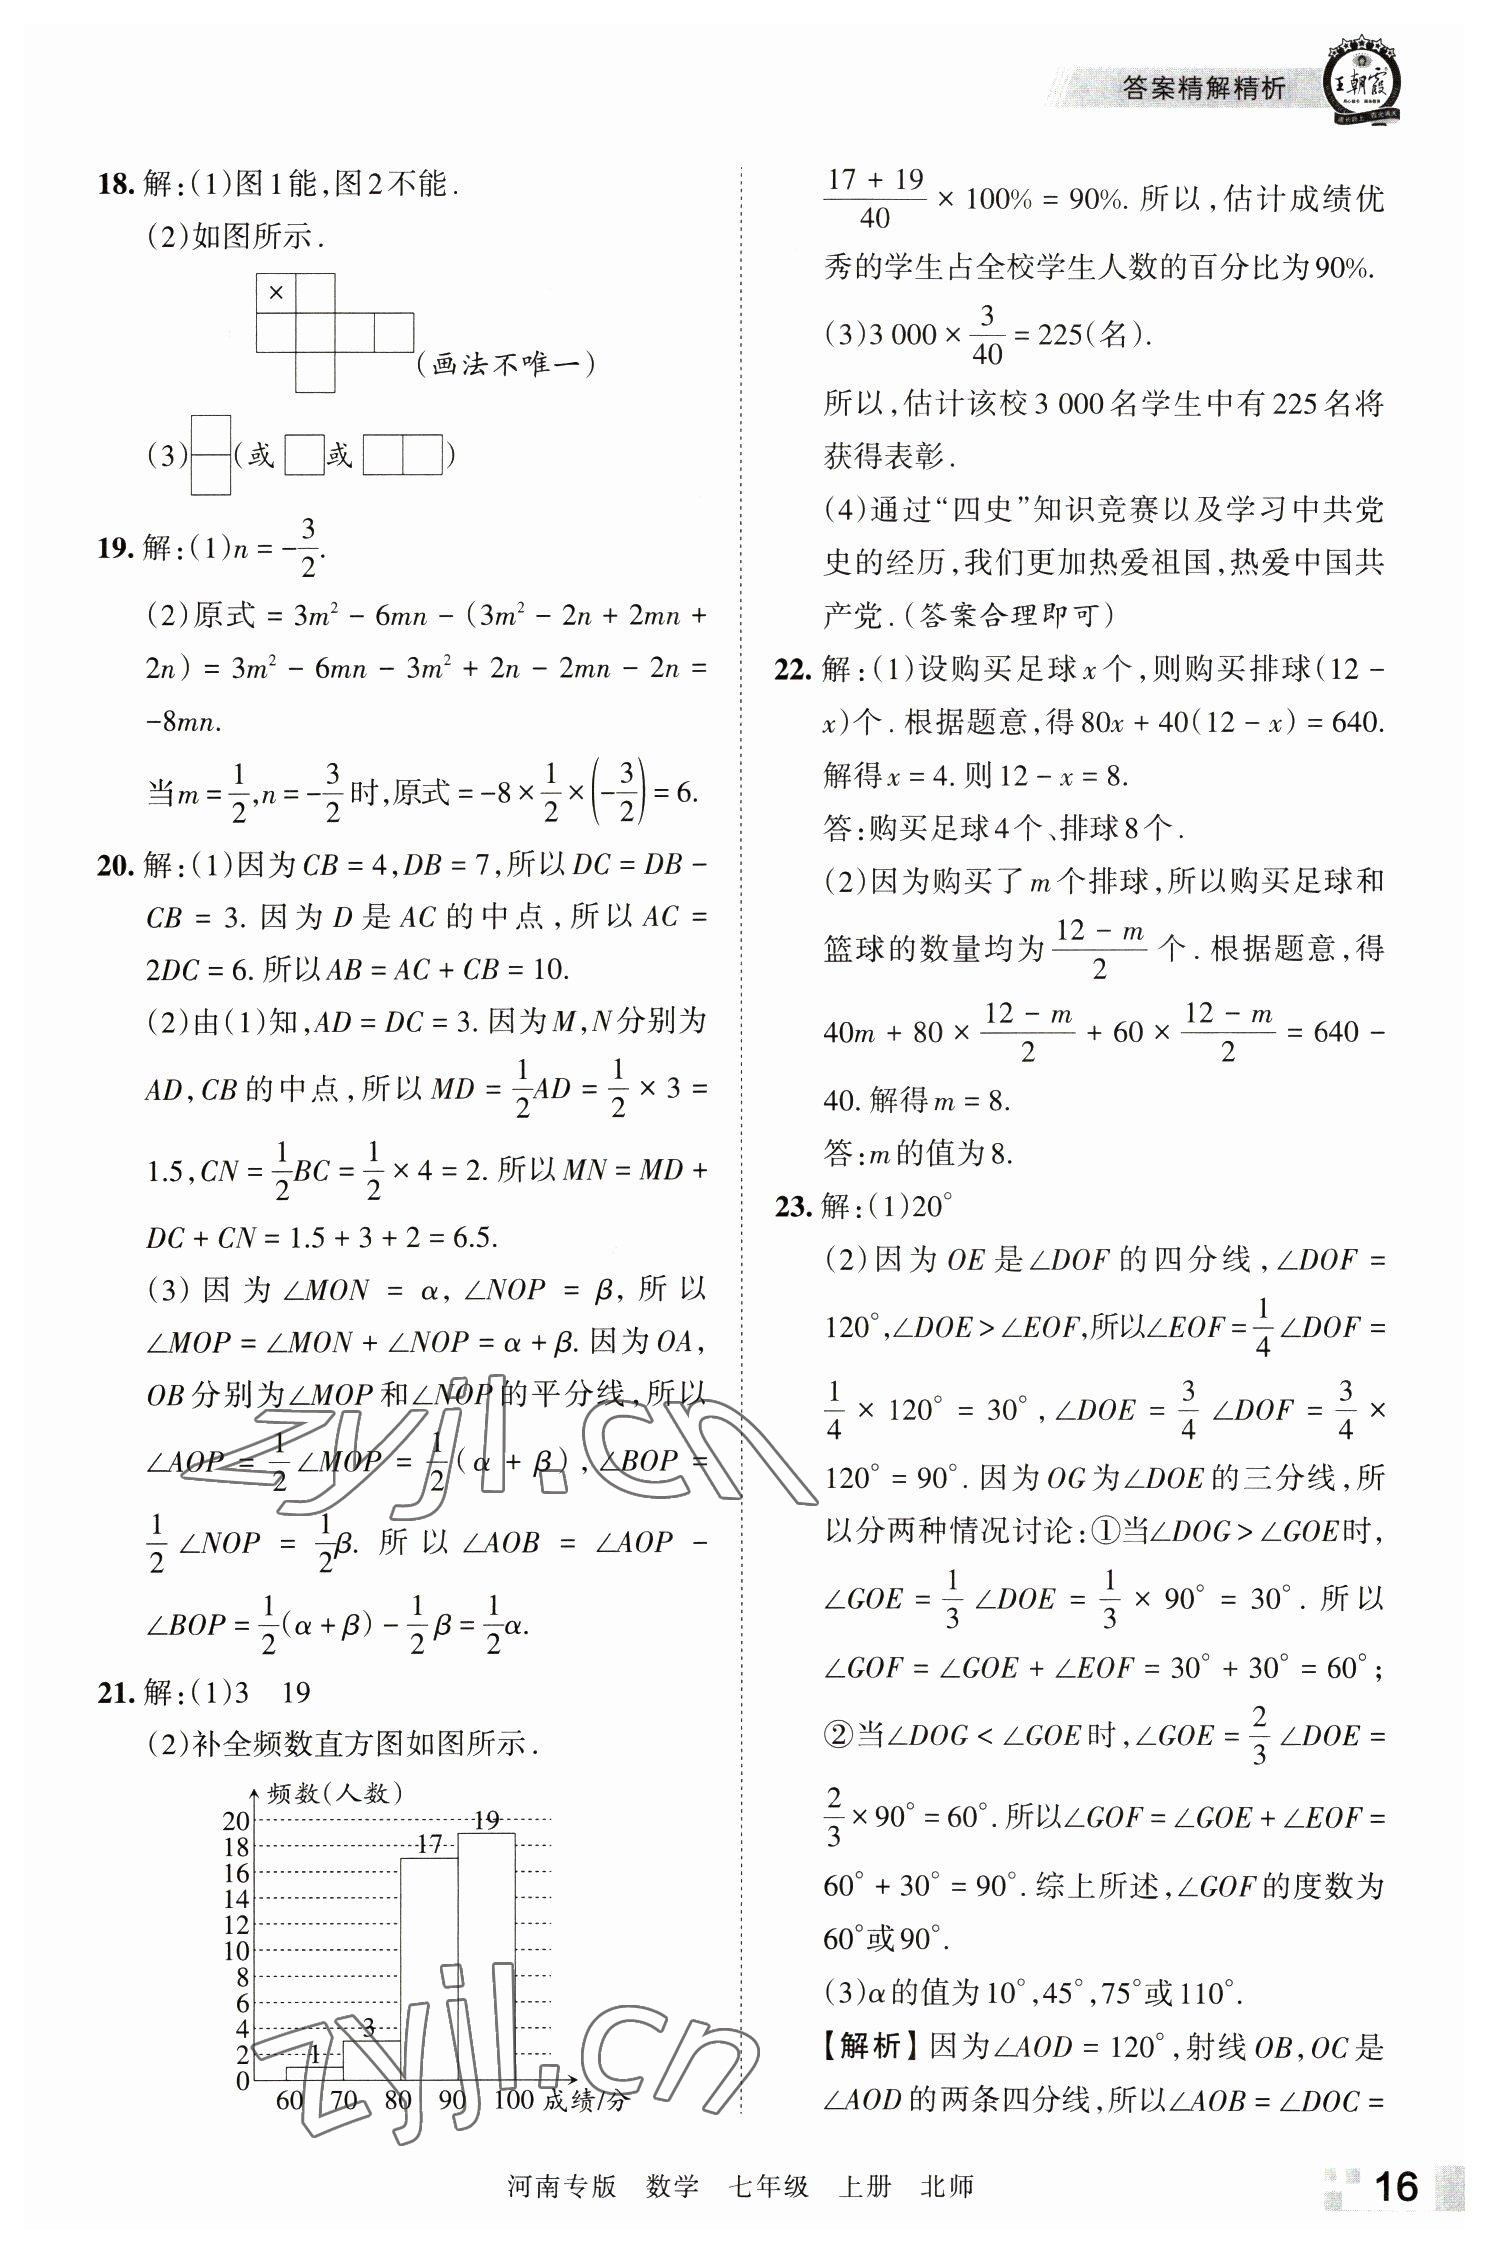 答案精解精析
王朝霞
18. 解:(1)图1能,图2不能.
(2)如图所示.
×
(画法不唯一)
(3)(或 或 )
19. 解:(1)n = -3/2.
(2)原式 = 3m² - 6mn - (3m² - 2n + 2mn +
2n) = 3m² - 6mn - 3m² + 2n - 2mn - 2n =
-8mn.
当m = 1/2,n = -3/2时,原式 = -8 × 1/2 × (-3/2) = 6.
20. 解:(1)因为CB = 4,DB = 7,所以DC = DB -
CB = 3. 因为D是AC的中点,所以AC =
2DC = 6. 所以AB = AC + CB = 10.
(2)由(1)知,AD = DC = 3. 因为M,N分别为
AD,CB的中点,所以MD = 1/2AD = 1/2 × 3 =
1.5,CN = 1/2BC = 1/2 × 4 = 2. 所以MN = MD +
DC + CN = 1.5 + 3 + 2 = 6.5.
(3)因为∠MON = α,∠NOP = β,所以
∠MOP = ∠MON + ∠NOP = α + β. 因为OA,
OB分别为∠MOP和∠NOP的平分线,所以
∠AOP = 1/2∠MOP = 1/2(α + β),∠BOP =
1/2∠NOP = 1/2β. 所以∠AOB = ∠AOP -
∠BOP = 1/2(α + β) - 1/2β = 1/2α.
21. 解:(1)3 19
(2)补全频数直方图如图所示.
频数(人数)
20
18
16
14
12
10
8
6
4
2
0
1
3
17
19
60 70 80 90 100 成绩/分
(17 + 19)/40 × 100% = 90%. 所以,估计成绩优
秀的学生占全校学生人数的百分比为90%.
(3)3 000 × 3/40 = 225(名).
所以,估计该校3 000名学生中有225名将
获得表彰.
(4)通过“四史”知识竞赛以及学习中共党
史的经历,我们更加热爱祖国,热爱中国共
产党.(答案合理即可)
22. 解:(1)设购买足球x个,则购买排球(12 -
x)个. 根据题意,得80x + 40(12 - x) = 640.
解得x = 4. 则12 - x = 8.
答:购买足球4个、排球8个.
(2)因为购买了m个排球,所以购买足球和
篮球的数量均为(12 - m)/2个. 根据题意,得
40m + 80 × (12 - m)/2 + 60 × (12 - m)/2 = 640 -
40. 解得m = 8.
答:m的值为8.
23. 解:(1)20°
(2)因为OE是∠DOF的四分线,∠DOF =
120°,∠DOE > ∠EOF,所以∠EOF = 1/4∠DOF =
1/4 × 120° = 30°,∠DOE = 3/4∠DOF = 3/4 ×
120° = 90°. 因为OG为∠DOE的三分线,所
以分两种情况讨论:①当∠DOG > ∠GOE时,
∠GOE = 1/3∠DOE = 1/3 × 90° = 30°. 所以
∠GOF = ∠GOE + ∠EOF = 30° + 30° = 60°;
②当∠DOG < ∠GOE时,∠GOE = 2/3∠DOE =
2/3 × 90° = 60°. 所以∠GOF = ∠GOE + ∠EOF =
60° + 30° = 90°. 综上所述,∠GOF的度数为
60°或90°.
(3)α的值为10°,45°,75°或110°.
【解析】因为∠AOD = 120°,射线OB,OC是
∠AOD的两条四分线,所以∠AOB = ∠DOC =
zyjl.cn
zyjl.cn
河南专版 数学 七年级 上册 北师
16